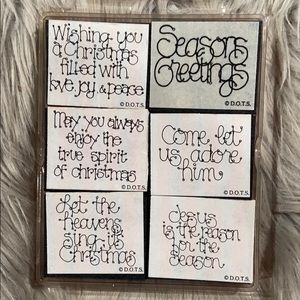 Wishing you
a Christmas
filled with
love, joy & peace
© D.O.T.S.
Seasons
Greetings
© D.O.T.S.
May you always
enjoy the
true spirit
of christmas
© D.O.T.S.
Come let
us adore
him
© D.O.T.S.
Let the
heavens
sing, it's
Christmas
© D.O.T.S.
Jesus
is the reason
for the
season
© D.O.T.S.